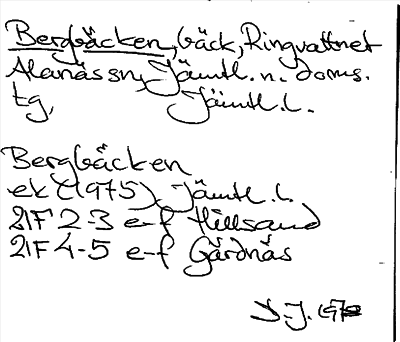 Bergbäcken, bäck, Ringvattnet
Alanäs sn, Jämtl. n. doms.
tg, Jämtl. l.
Bergbäcken
ek (1975) Jämtl. l.
21F 2-3 e-f Hillsand
21F 4-5 e-f Gårdnäs